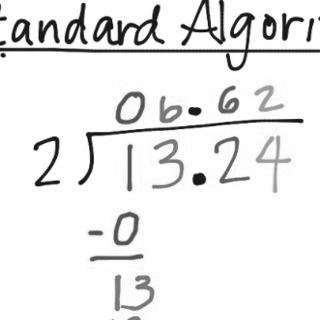 tandard Algori
06.62
2)13.24
-0
13